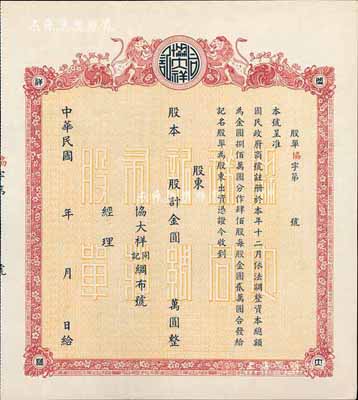 協大祥
同記
股單協字第 號
本號呈准
國民政府商號註冊於本年十二月依法調整資本總額
為金圓捌佰萬圓分作肆佰股每股金圓貳萬圓合發給
記名股單為股東出資憑證今收到
股東
股本 股計金圓 萬圓整
協大祥同記綢布號
經理
中華民國 年 月 日給
協字第
號